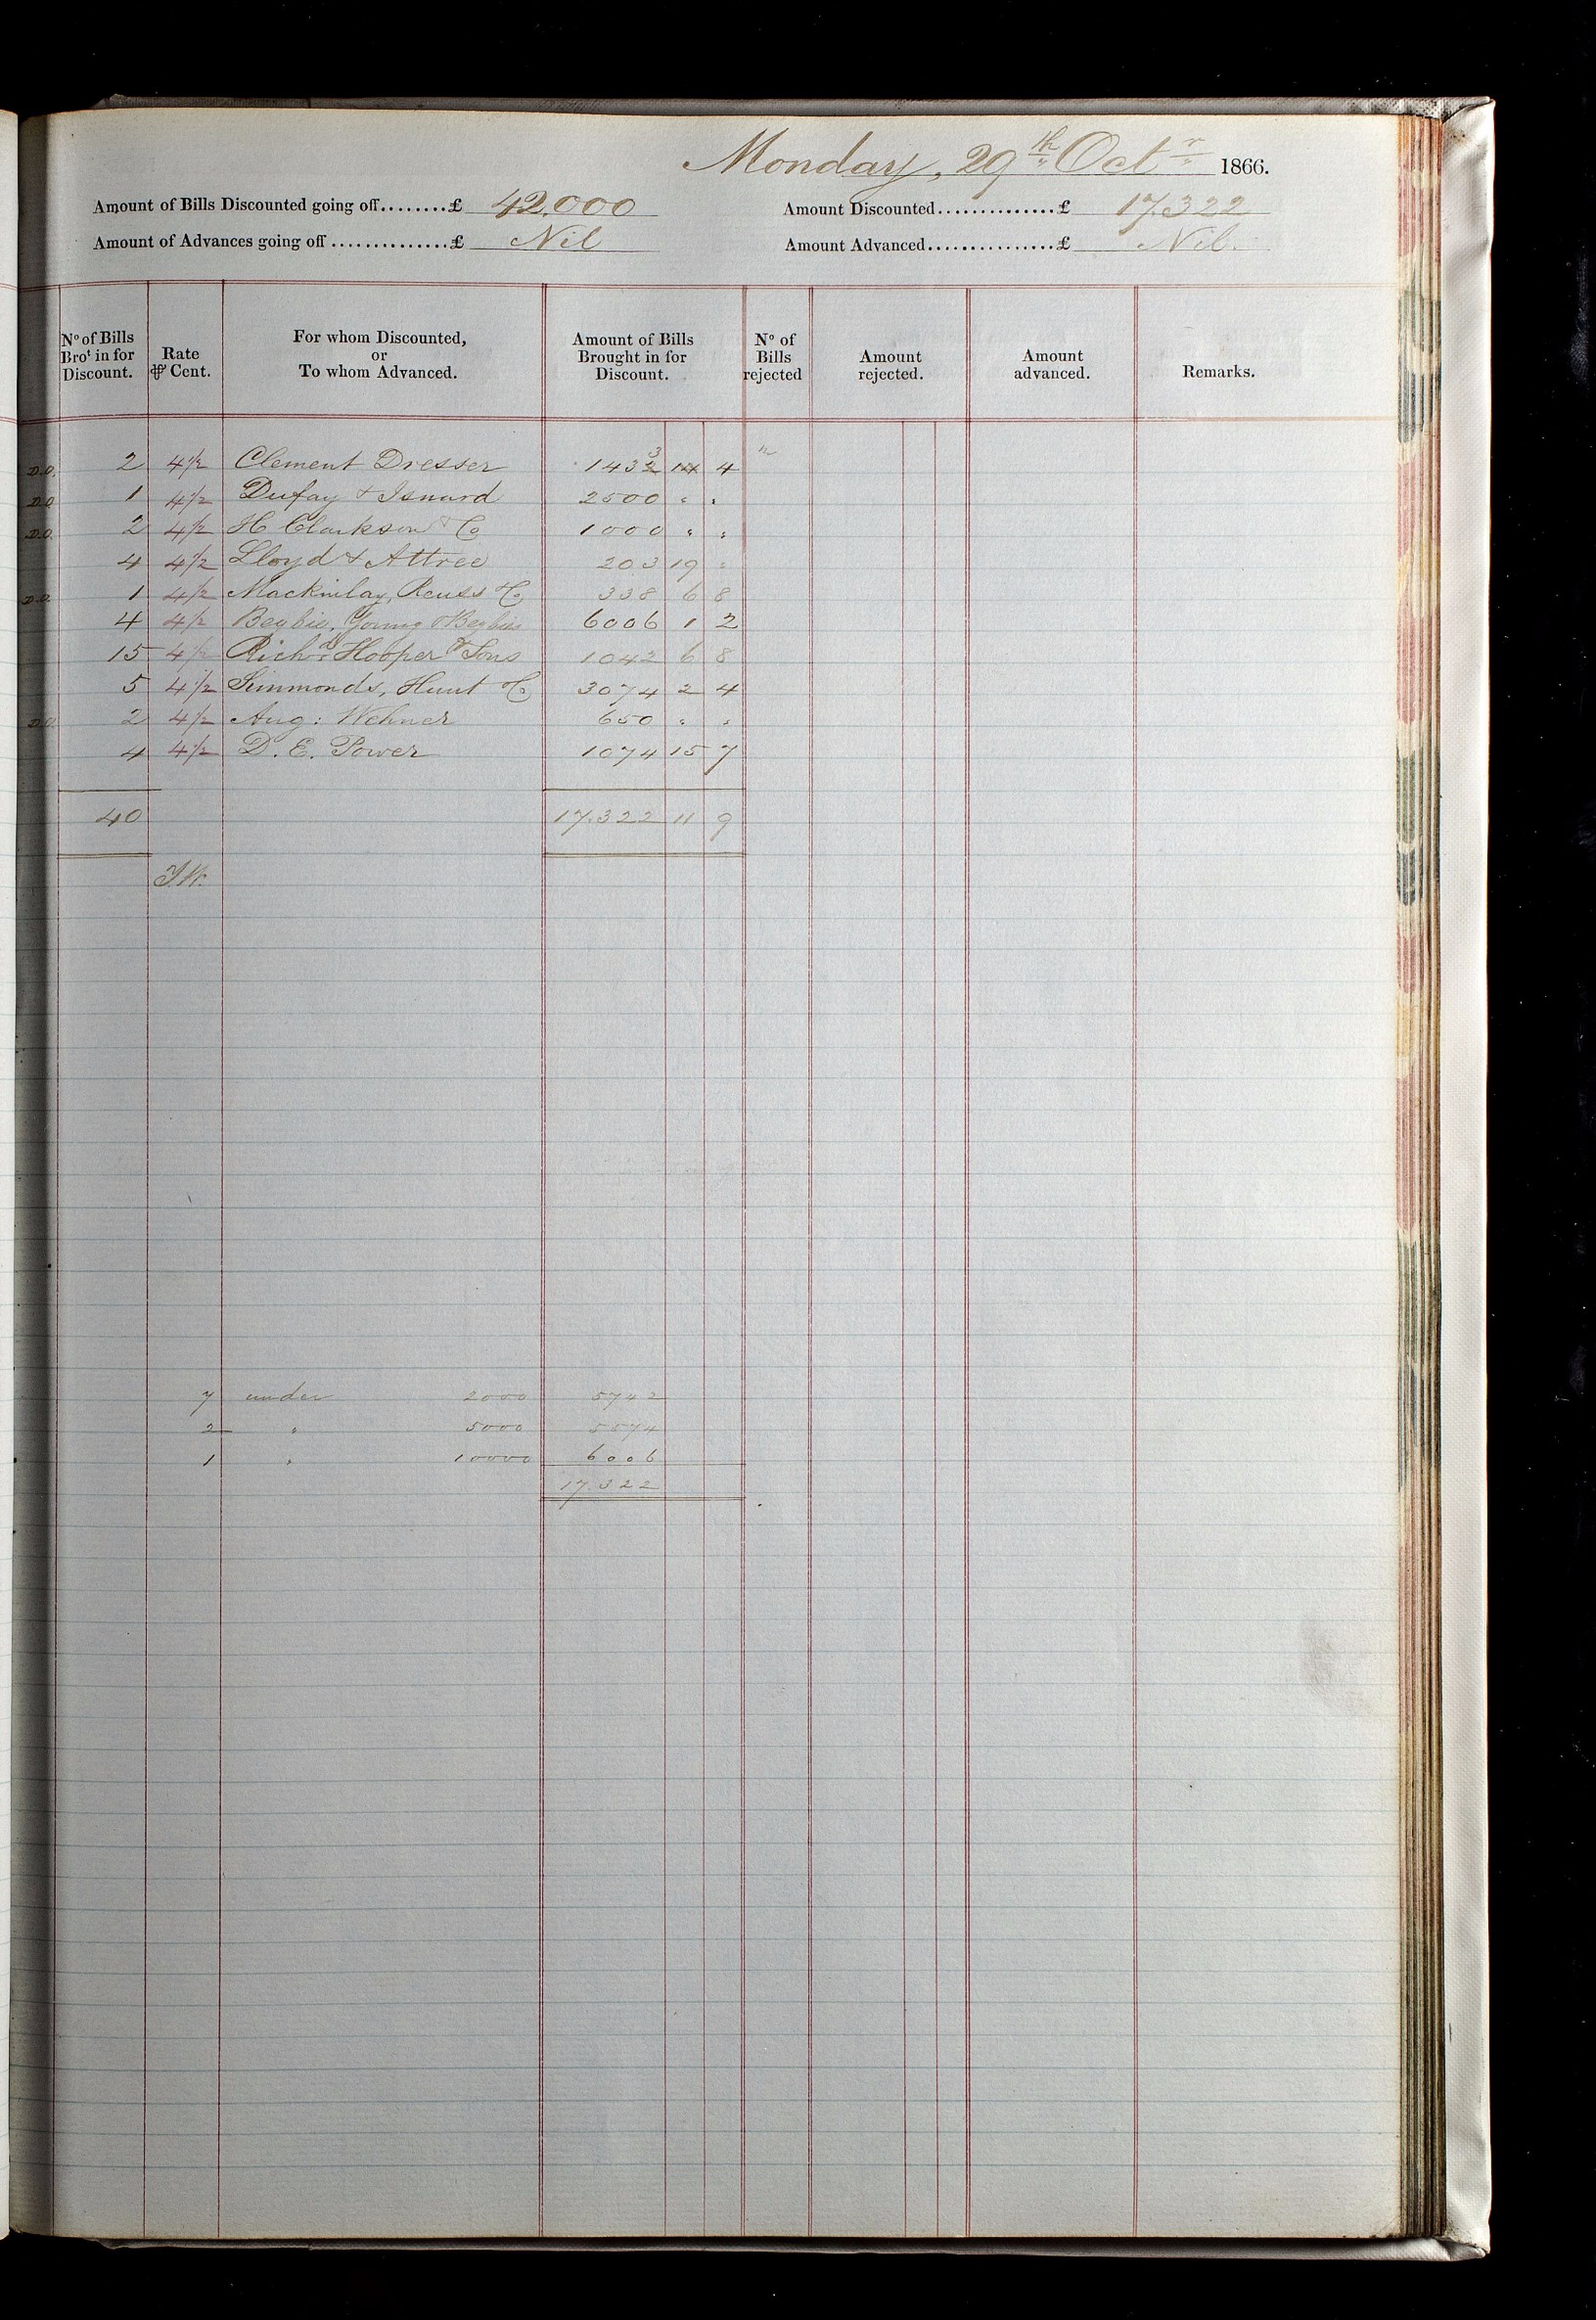 Monday, 29th Octr 1866.
Amount of Bills Discounted going off........£ 42,000 Amount Discounted..............£ 17,322
Amount of Advances going off..............£ Nil Amount Advanced................£ Nil.
No of Bills Brot in for Discount. Rate ⅌ Cent. For whom Discounted, or To whom Advanced. Amount of Bills Brought in for Discount. No of Bills rejected Amount rejected. Amount advanced. Remarks.
D.O. 2 4½ Clement Dresser 1432 3 14 4 "
D.O. 1 4½ Dufay & Isnard 2500 " "
D.O. 2 4½ H Clarkson & Co 1000 " "
4 4½ Lloyd & Attree 203 19 "
D.O. 1 4½ Mackinlay, Reuss & Co 338 6 8
4 4½ Begbie, Young & Begbies 6006 1 2
15 4½ Richd Hooper & Sons 1042 6 8
5 4½ Simmonds, Hunt & Co 3074 2 4
D.O. 2 4½ Aug: Wehner 650 " "
4 4½ D. E. Power 1074 15 7
40 17.322 11 9
7 under 2000 5742
2 " 5000 5574
1 " 10000 6006
17.322